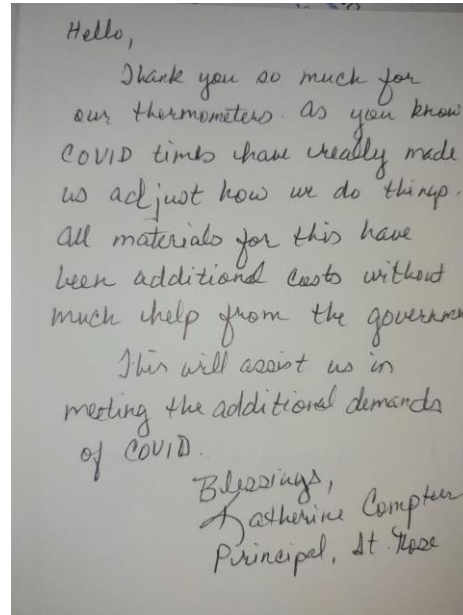 Hello,
Thank you so much for
our thermometers. As you know
COVID times have really made
us adjust how we do things.
All materials for this have
been additional costs without
much help from the governmen
This will assist us in
meeting the additional demands
of COVID.
Blessings,
Katherine
Principal, St. Rose